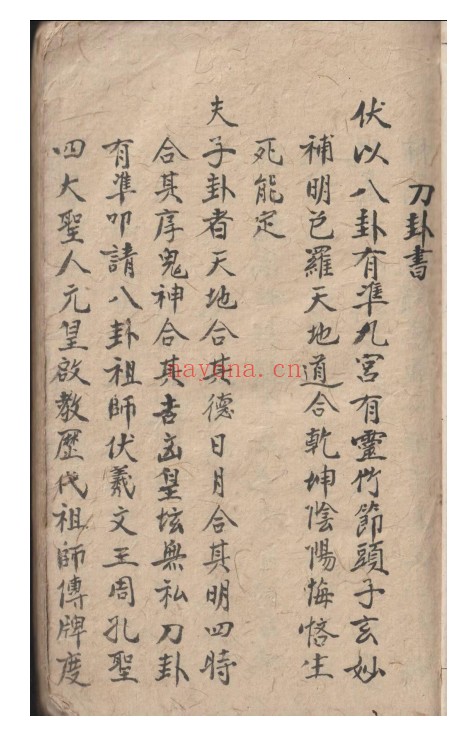 刀卦書
伏以八卦有準九宮有靈竹節頭子玄妙
補明包羅天地道合乾坤陰陽悔悋生
死能定
夫子卦者天地合其德日月合其明四時
合其序鬼神合其吉凶皇壇無私刀卦
有準叩請八卦祖師伏羲文王周孔聖
四大聖人元皇啟教歷代祖師傳牌度
nayona.cn